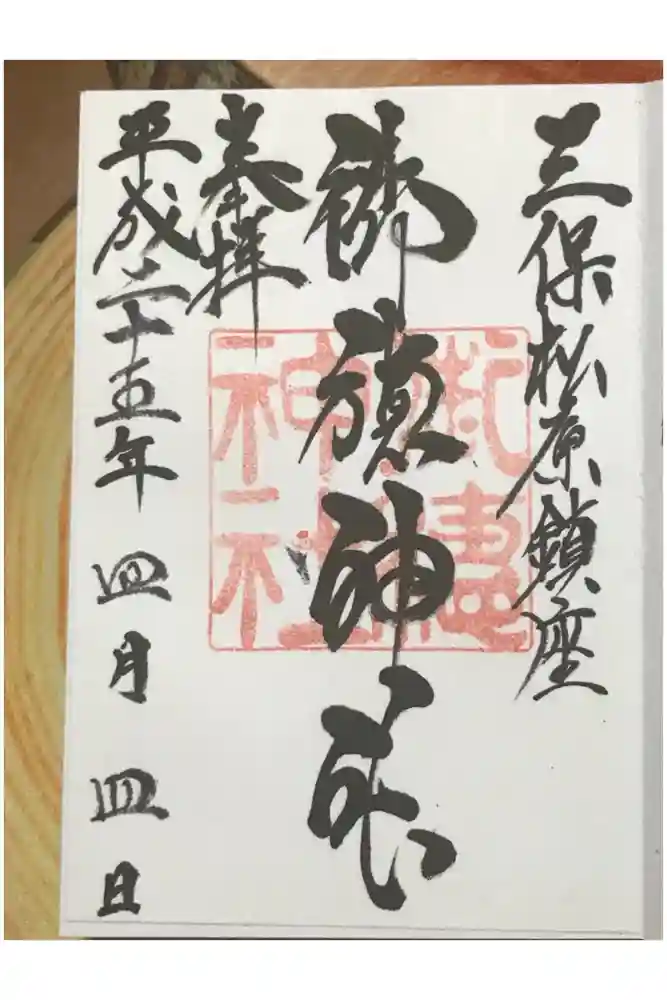 三保松原鎮座
御穂神社
奉拝
平成二十五年 四月 四日
御穂神社